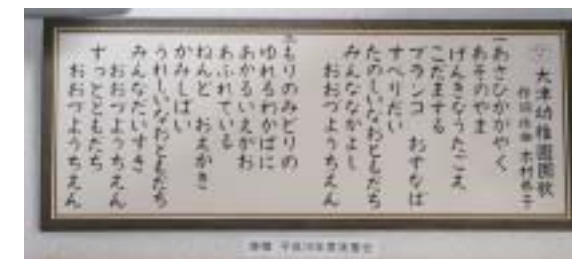 大津幼稚園園歌
作詞作曲 木村
一 あさひかがやく
あそのやま
げんきなうたごえ
こだまする
すべりだい
ブランコ おすなば
たのしいなおともだち
みんななかよし
おおづようちえん
二 もりのみどりの
ゆれるわかばに
あかるいえがお
あふれている
ねんど おえかき
かみしばい
うれしいなおともだち
みんなだいすき
おおづようちえん
ずっとともだち
おおづようちえん
寄贈 平成